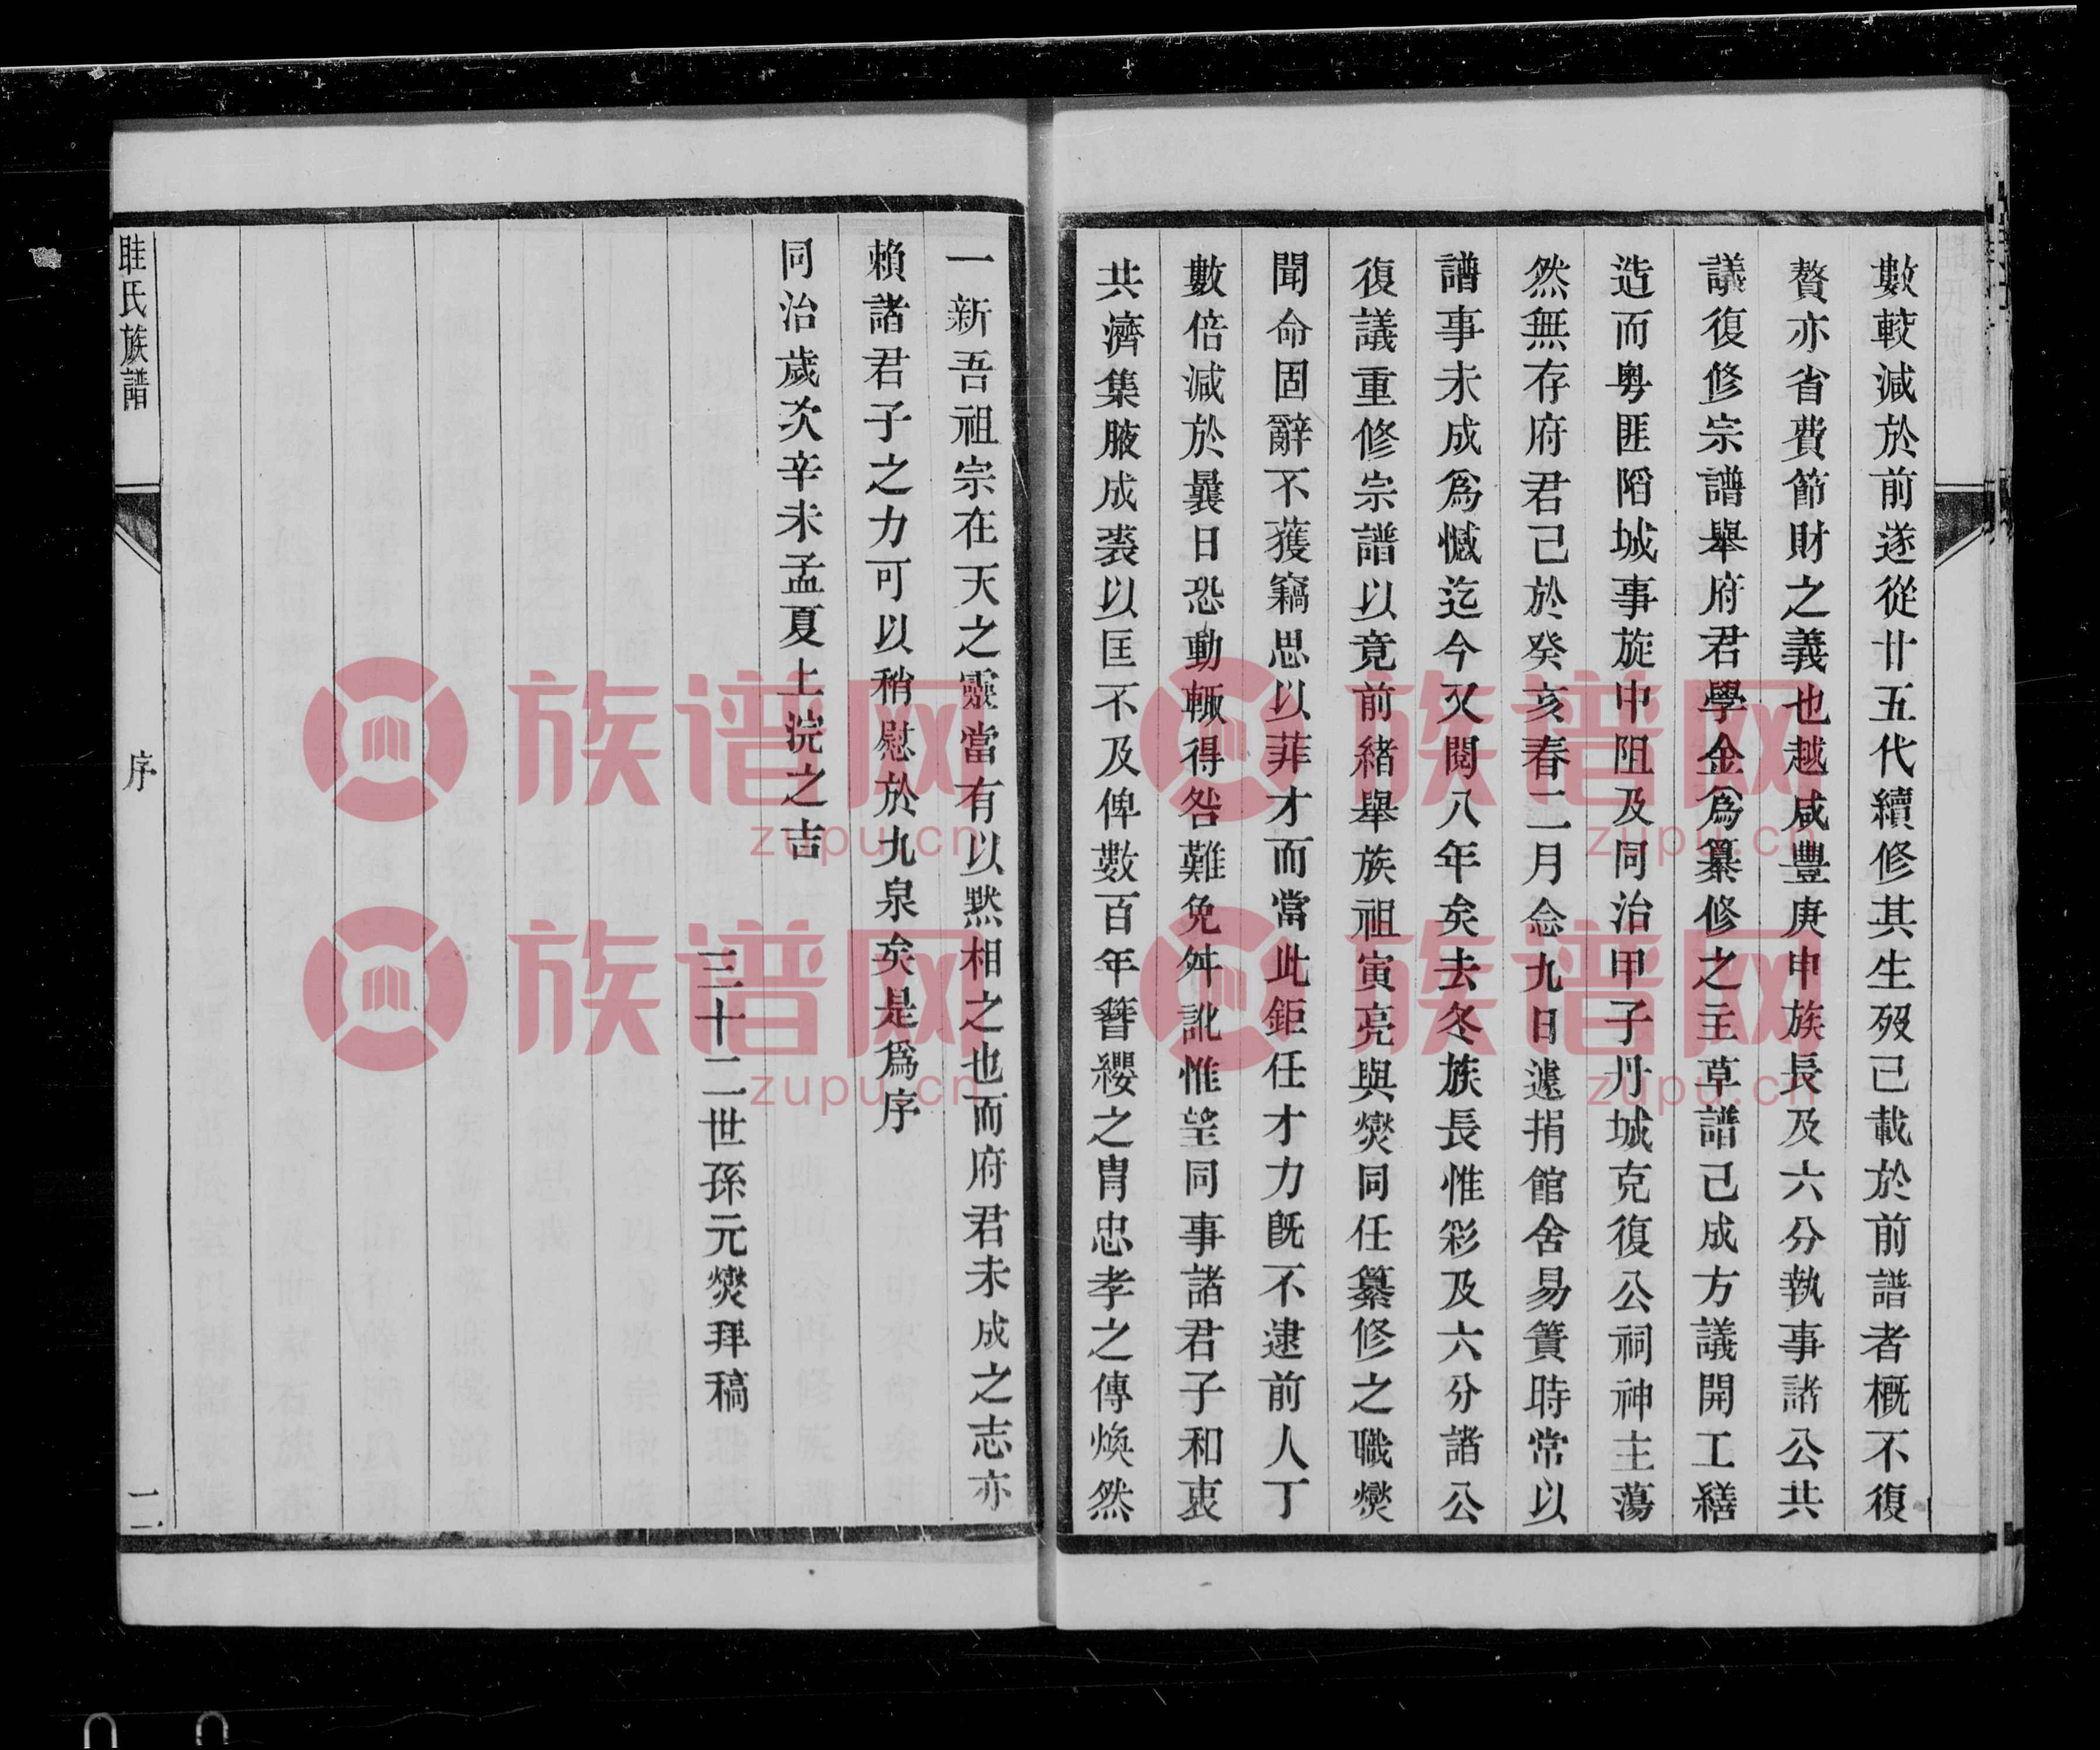 數較減於前遂從廿五代續修其生歿己載於前譜者槪不復
贅亦省費節財之義也越咸豐庚申族長及六分執事諸公共
議復修宗譜舉府君學金爲纂修之主草譜己成方議開工繕
造而粤匪陷城事旋中阻及同治甲子丹城克復公祠神主蕩
然無存府君己於癸亥春二月念九日遽捐館舍易簀時常以
譜事未成爲憾迄今又閱八年矣去冬族長惟彩及六分諸公
復議重修宗譜以竟前緒舉族祖寅亮與爕同任纂修之職爕
聞命固辭不獲竊思以菲才而當此鉅任才力旣不逮前人丁
數倍減於曩日恐動輒得咎難免舛訛惟望同事諸君子和衷
共濟集腋成裘以匡不及俾數百年簪纓之胄忠孝之傳煥然
一新吾祖宗在天之靈當有以默相之也而府君未成之志亦
賴諸君子之力可以稍慰於九泉矣是爲序
同治歲次辛未孟夏上浣之吉
三十二世孫元爕拜稿
眭氏族譜
序
二
族谱网
zupu.cn
族谱网
zupu.cn
族谱网
zupu.cn
族谱网
zupu.cn